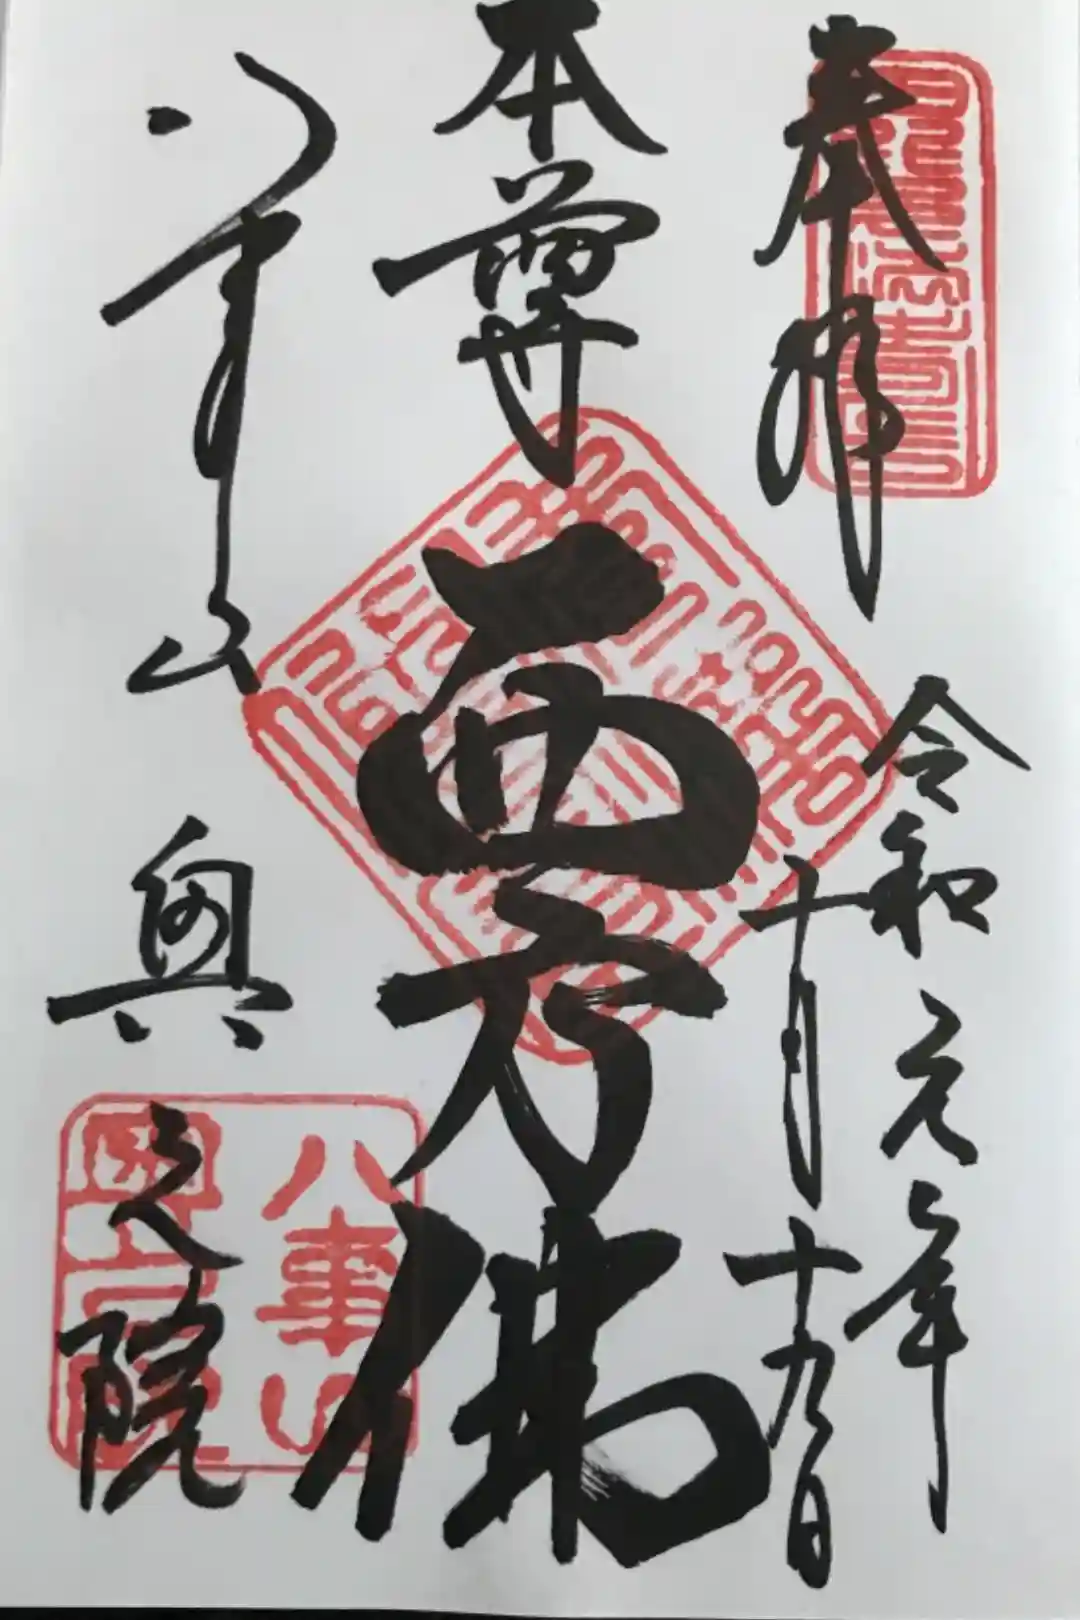 奉拝
令和元年
十月十九日
本尊
西方佛
八事山
奥之院
八事山
奥之院